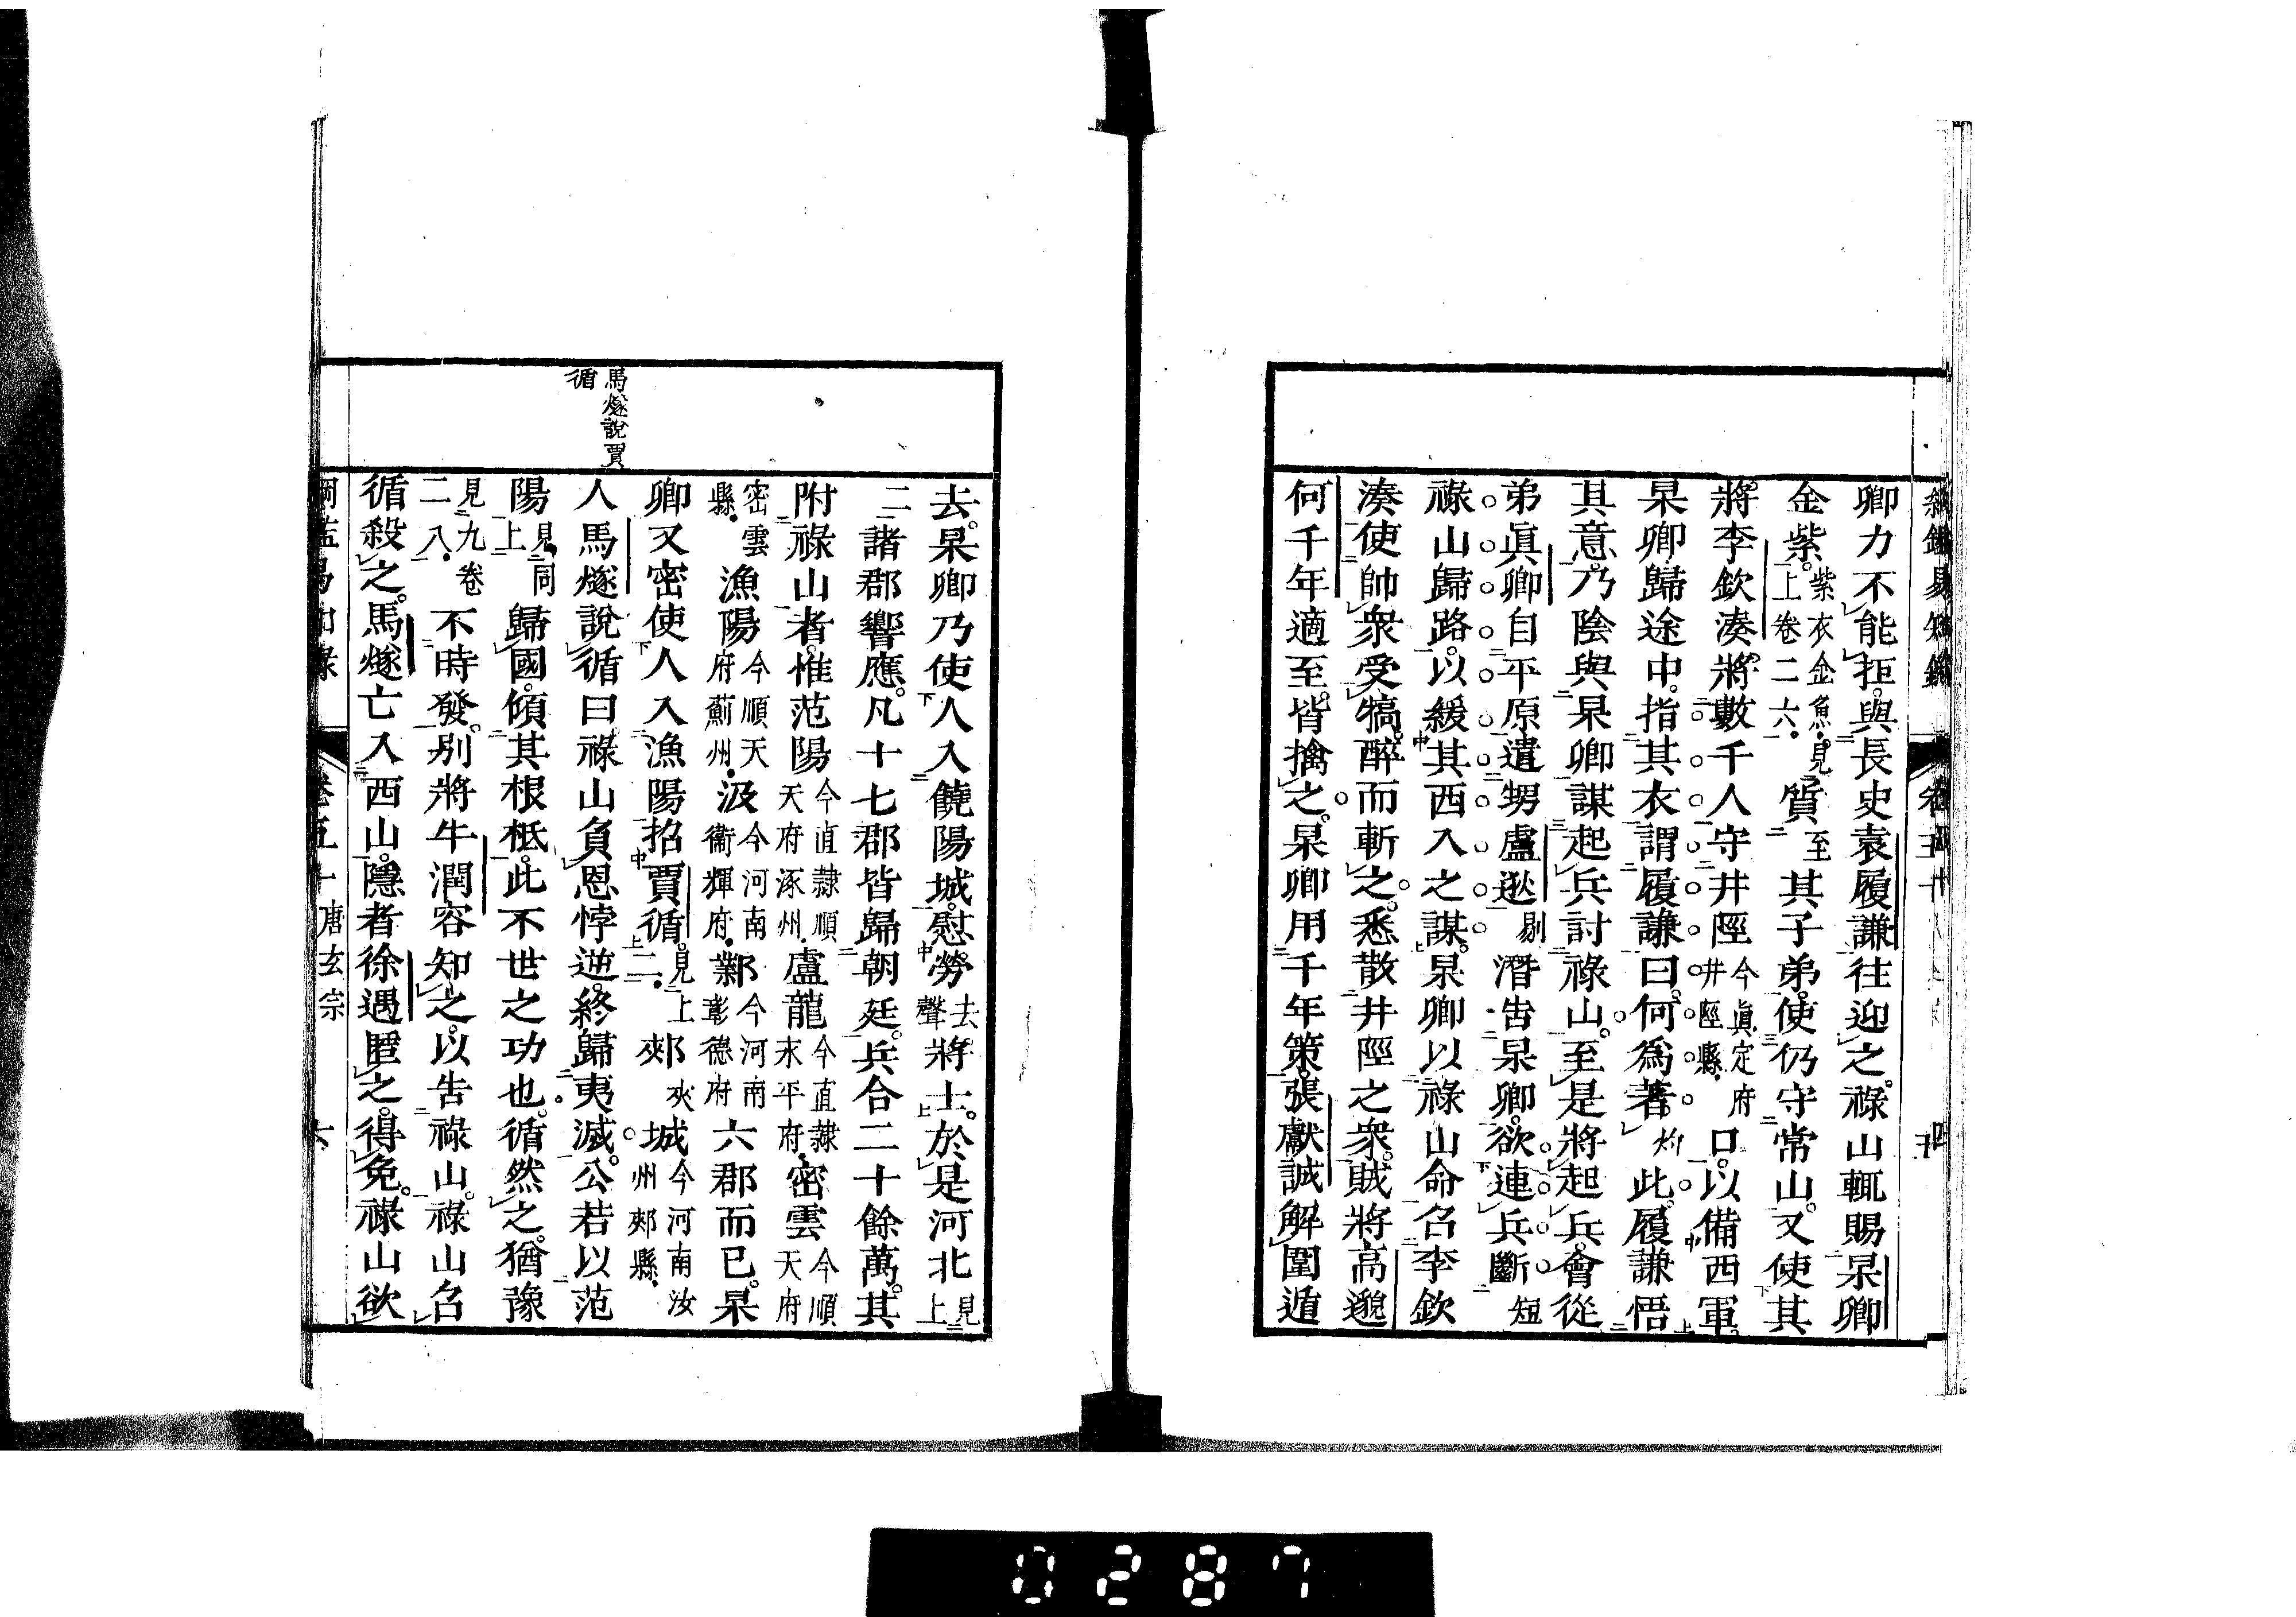 卿力不能拒與長史袁履謙往迎之祿山輒賜杲卿
金紫紫衣金魚見上卷二六質至其子弟使仍守常山又使其
將李欽湊將數千人守井陘今真定府井陘縣口以備西軍
杲卿歸途中指其衣謂履謙曰何爲著灼此履謙悟
其意乃陰與杲卿謀起兵討祿山至是將起兵會從
弟眞卿自平原遣甥盧逖剔潛告杲卿欲連兵斷短
祿山歸路以緩其西入之謀杲卿以祿山命召李欽
湊使帥衆受犒醉而斬之悉散井陘之衆賊將高邈
何千年適至皆擒之杲卿用千年策張獻誠解圍遁
去杲卿乃使人入饒陽城慰勞去聲將士於是河北見上
二諸郡響應凡十七郡皆歸朝廷兵合二十餘萬其
附祿山者惟范陽今直隸順天府涿州盧龍今直隸永平府密雲今順天府
密雲縣漁陽今順天府薊州汲今河南衞輝府鄴今河南彰德府六郡而已杲
卿又密使人入漁陽招賈循見上二郟夾城今河南汝州郟縣
人馬燧說循曰祿山負恩悖逆終歸夷滅公若以范
陽見同上歸國傾其根柢此不世之功也循然之猶豫
見九卷二八不時發別將牛潤容知之以告祿山祿山召
循殺之馬燧亡入西山隱者徐遇匿之得免祿山欲
馬燧說賈
循
綱鑑易知錄 卷五十 唐玄宗 六
0287